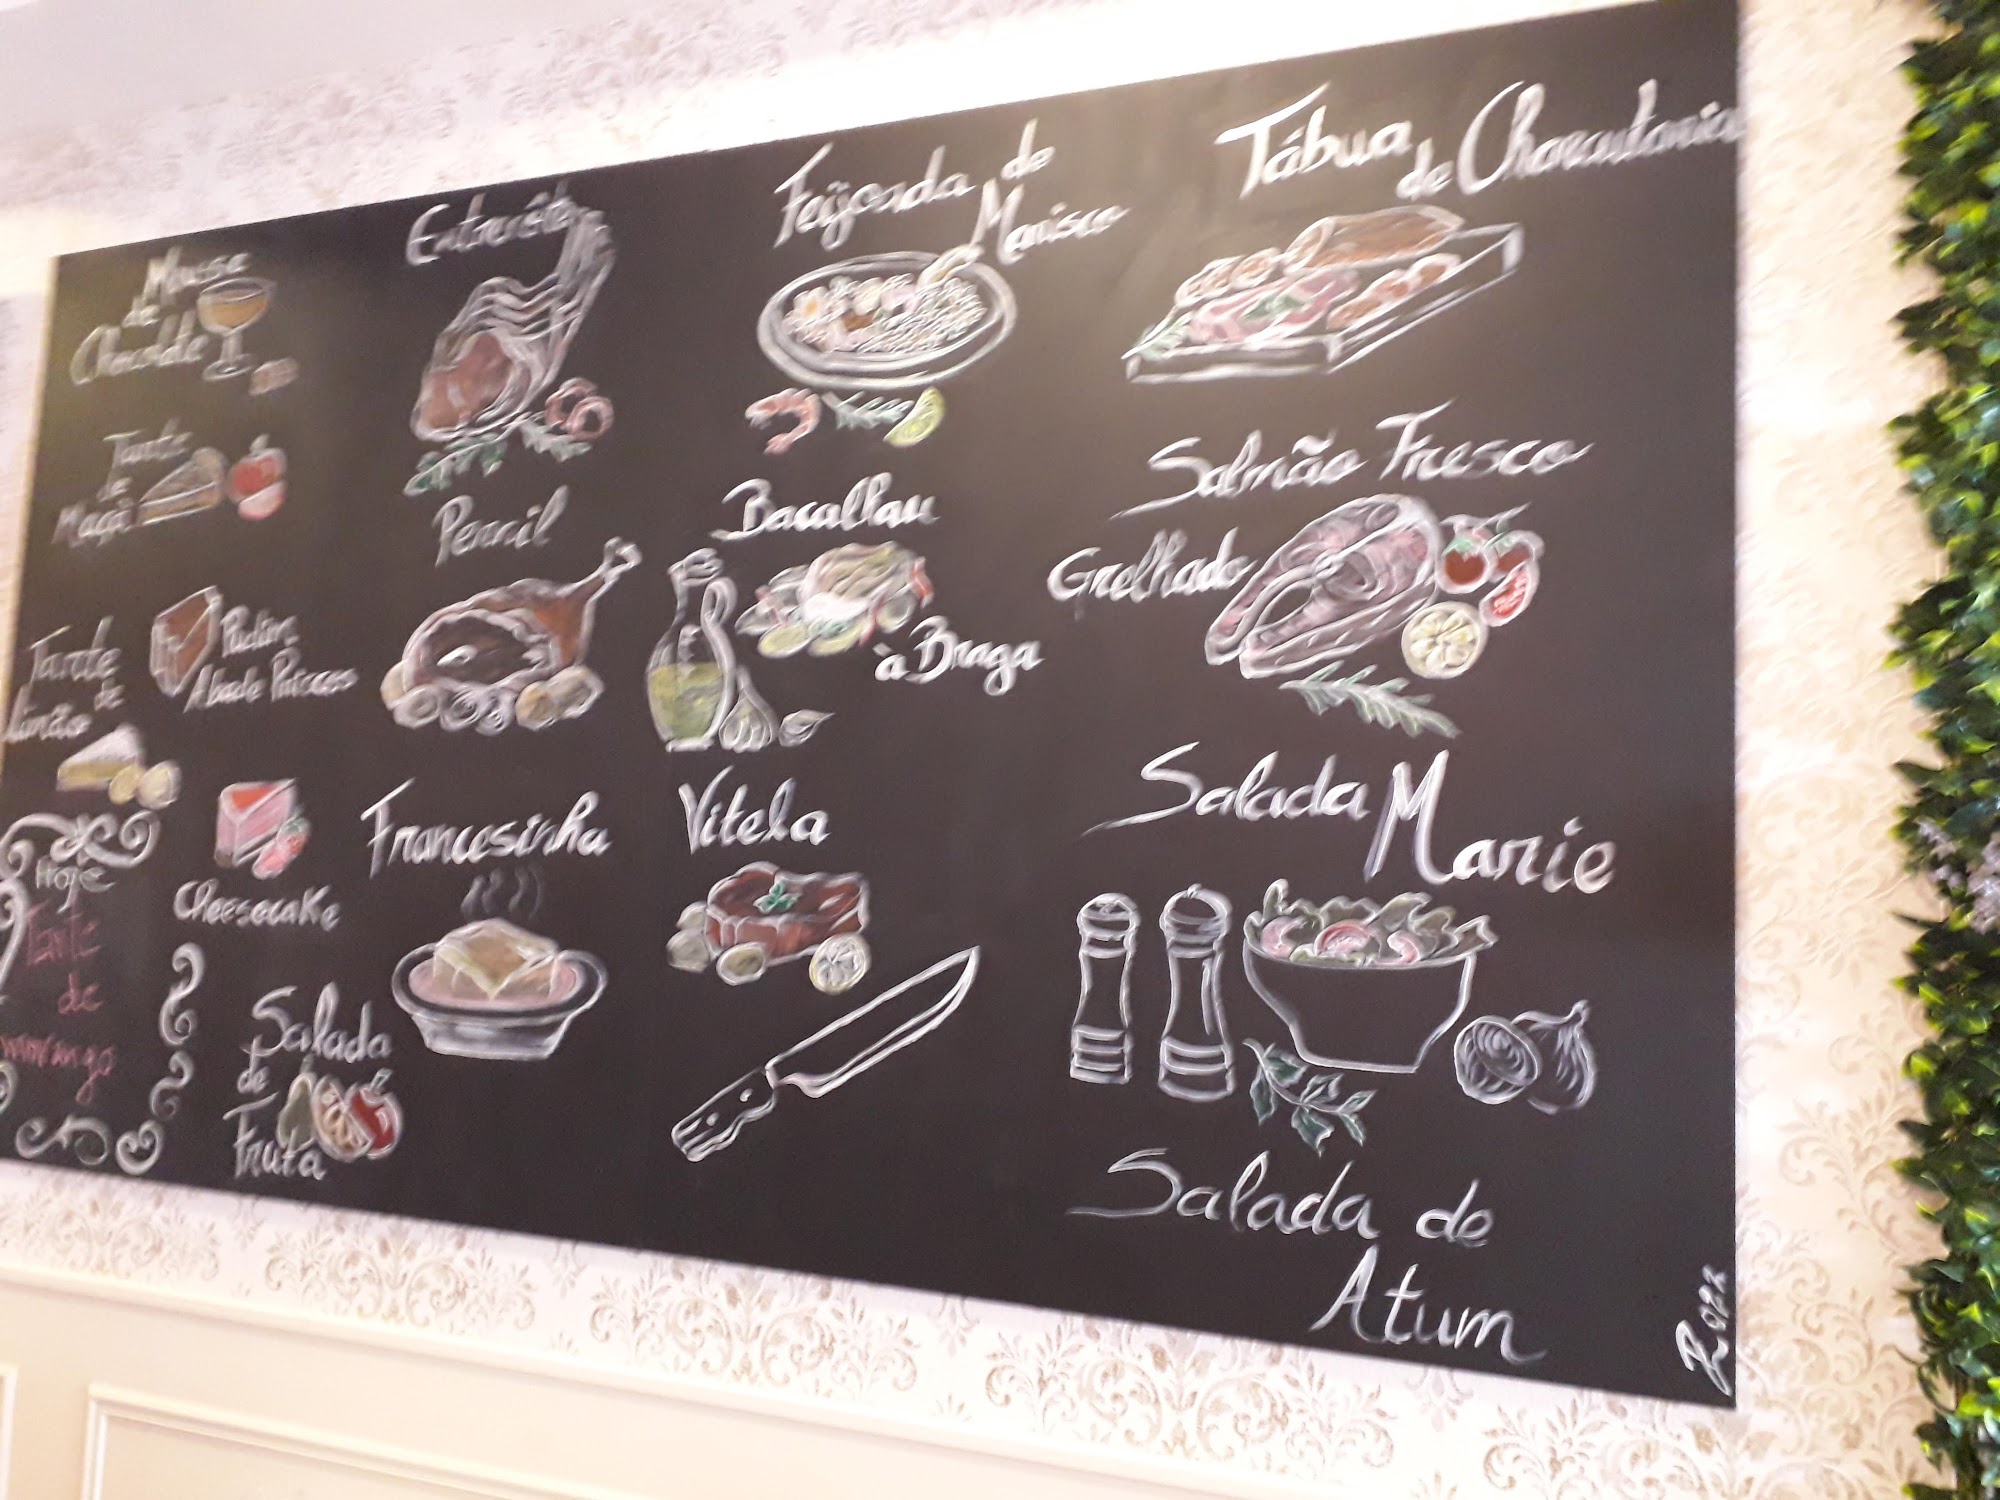 Mousse
de
Chocolate
Tarte
de
Maçã
Tarte
de
Limão
Pudim
Abade Priscos
Cheesecake
Hoje
Tarte
de
morango
Salada
de
Fruta
Entrecôte
Pernil
Francesinha
Feijoada de
Marisco
Bacalhau
à Braga
Vitela
Tábua
de Charcutaria
Salmão Fresco
Grelhado
Salada
Marie
Salada de
Atum